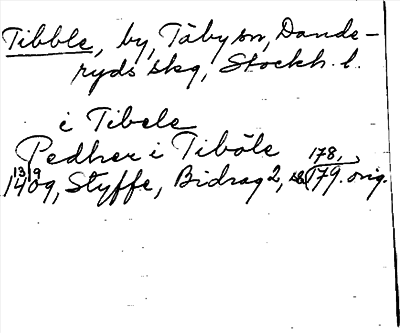 Tibble, by, Täby sn, Dande-
ryds skg, Stockh. l.
i Tibele
Pedher i Tiböle
178,
13 9
1409, Styffe, Bidrag 2, s. 179. orig.